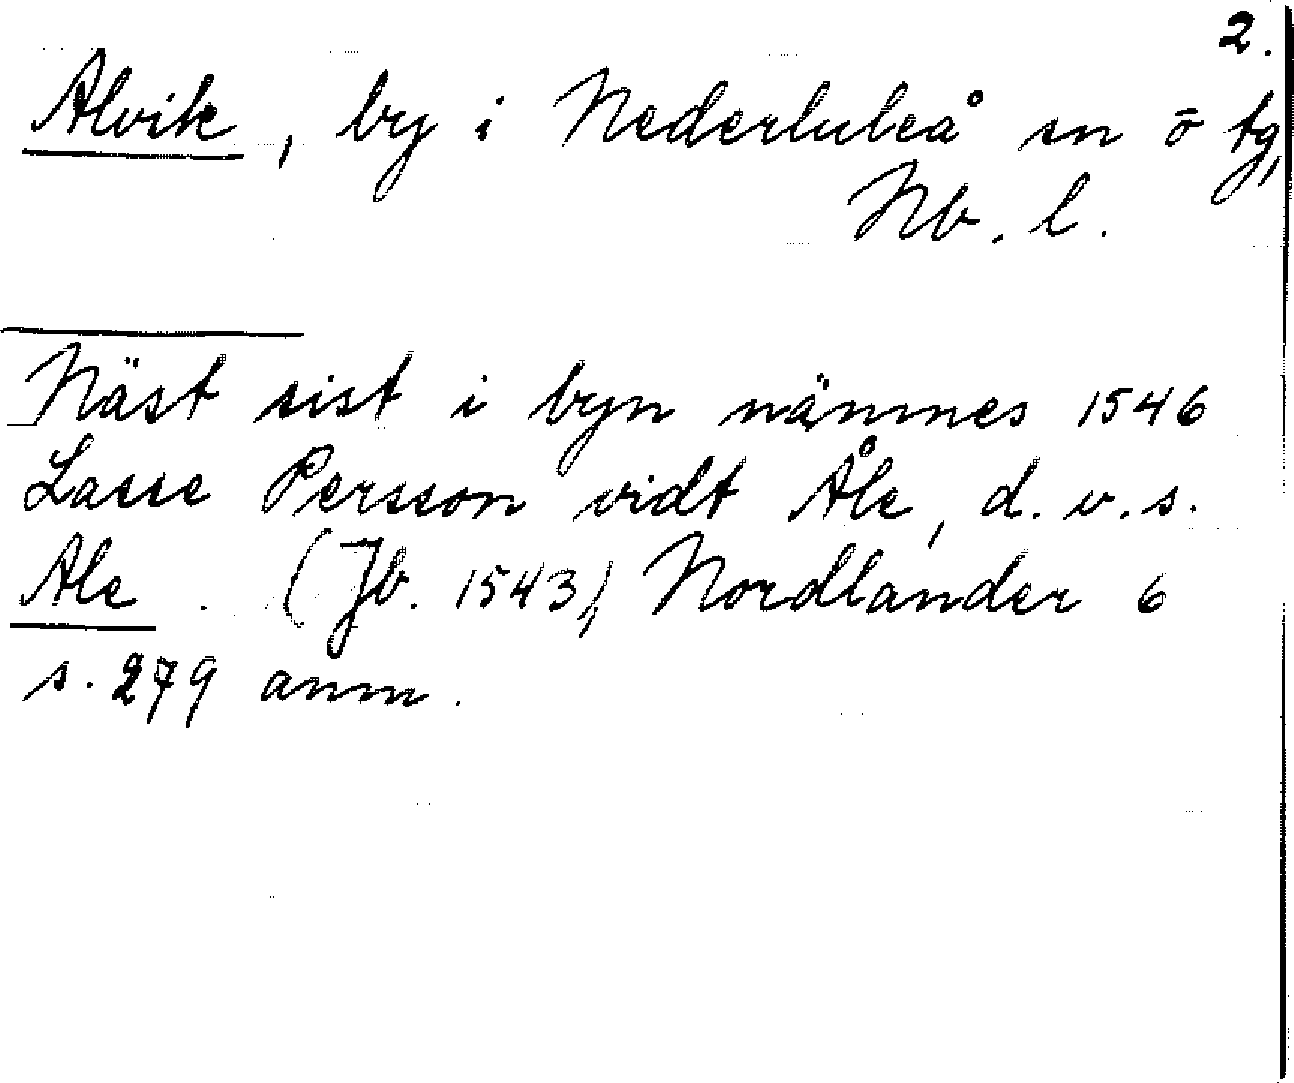 2.
Alvik, by i Nederluleå sn ö tg,
Nb. l.
Näst sist i byn nämnes 1546
Lasse Persson vidt Åle, d. v. s.
Ale. (Jb. 1543), Nordlander 6
s. 279 anm.